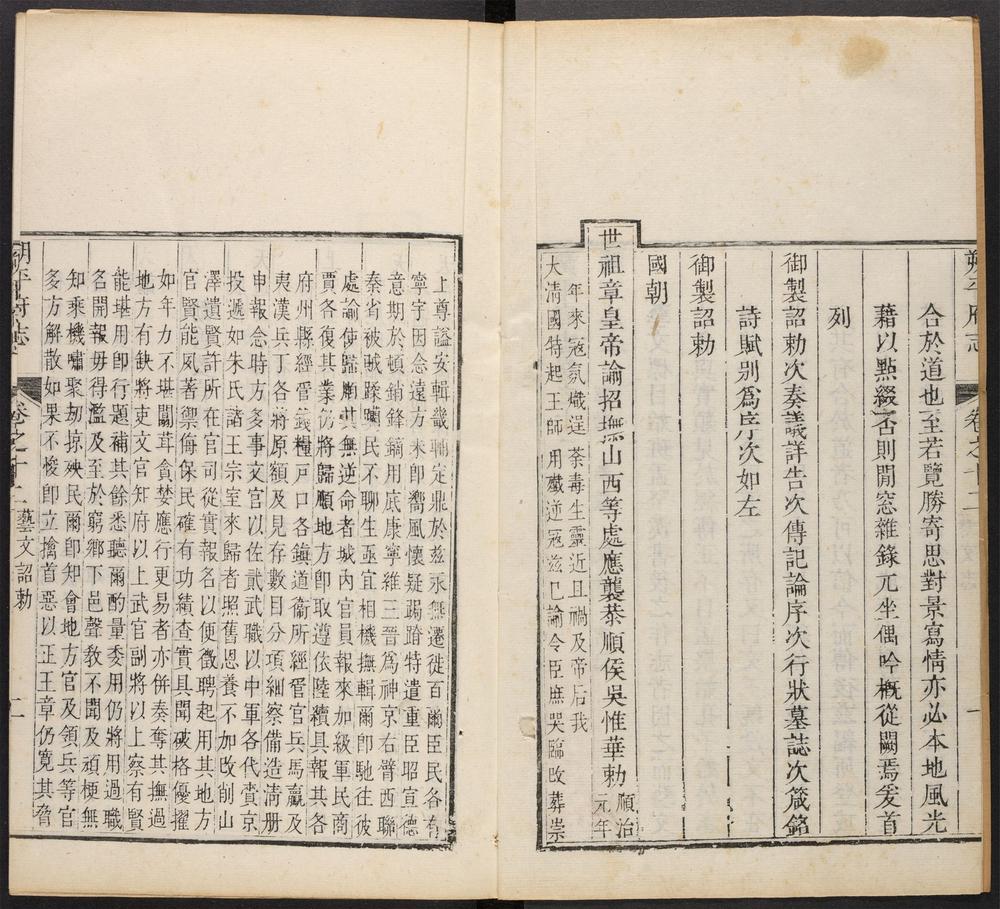 朔平府志
卷之十二
一
合於道也至若覽勝寄思對景寫情亦必本地風光
藉以點綴否則閒窓雜錄兀坐偶吟概從闕焉爰首
列
御製詔勅次奏議詳告次傳記論序次行狀墓誌次箴銘
詩賦別爲序次如左
御製詔勅
國朝
世祖章皇帝諭招撫山西等處應襲恭順侯吳惟華勅順治元年
年來冦氛熾逞荼毒生靈近且禍及帝后我
大清國特起王師用殲逆冦兹已諭令臣庶哭臨改葬崇
上尊謚安輯畿輔定鼎於兹永無遷徙百爾臣民各有
寧宇因念遠方未卽嚮風懷疑跼蹐特遣重臣昭宣德
意期於頓銷鋒鏑用底康寧維三晉爲神京右臂西聯
秦省被賊蹂躪民不聊生亟宜相機撫輯爾卽馳往彼
處諭使歸順其無逆命者城内官員報來加級軍民商
賈各復其業仍將歸順地方卽取遵依陸續具報其各
府州縣經管錢糧戸口各鎭道衞所經管官兵馬羸及
夷漢兵丁各將原額及見存數目分項細察備造清册
申報念時方多事文官以佐貳武職以中軍各代賫京
投遞如朱氏諸王宗室來歸者照舊恩養不加改削山
澤遺賢許所在官司從實報名以便徵聘起用其地方
官賢能夙著禦侮保民確有功績查實具聞破格優擢
如年力不堪闒茸貪婪應行更易者亦併奏奪其撫過
地方有缺將吏文官知府以上武官副將以上察有賢
能堪用卽行題補其餘悉聽爾酌量委用仍將用過職
名開報毋得濫及至於窮鄉下邑聲敎不聞及頑梗無
知乘機嘯聚刼掠殃民爾卽知會地方官及領兵等官
多方解散如果不悛卽立擒首惡以正王章仍寛其脅
朔平府志
卷之十二
藝文
詔勅
二